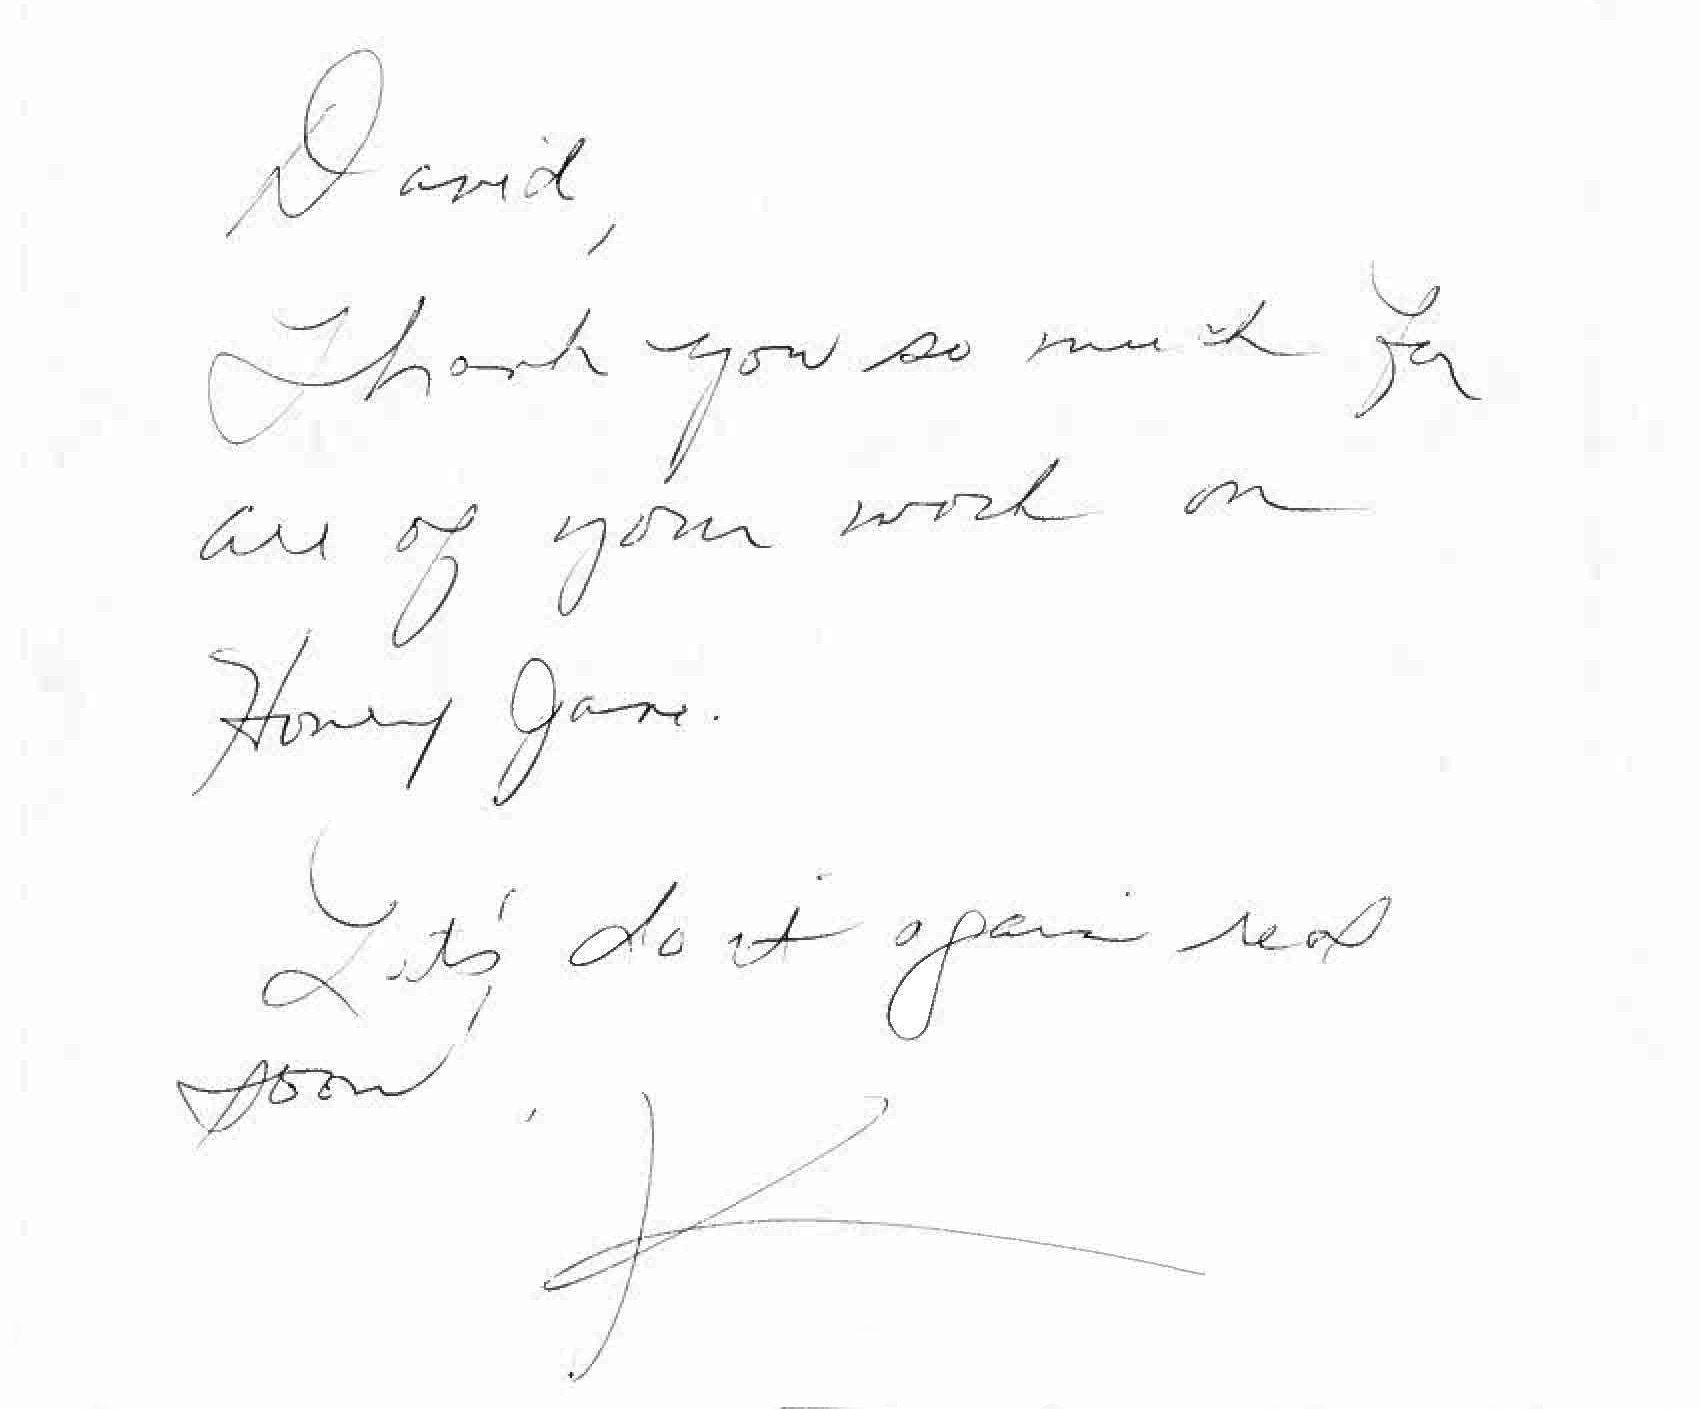 David,
Thank you so much for
all of your work on
Honey Jane.
Let's do it again real
soon.
K